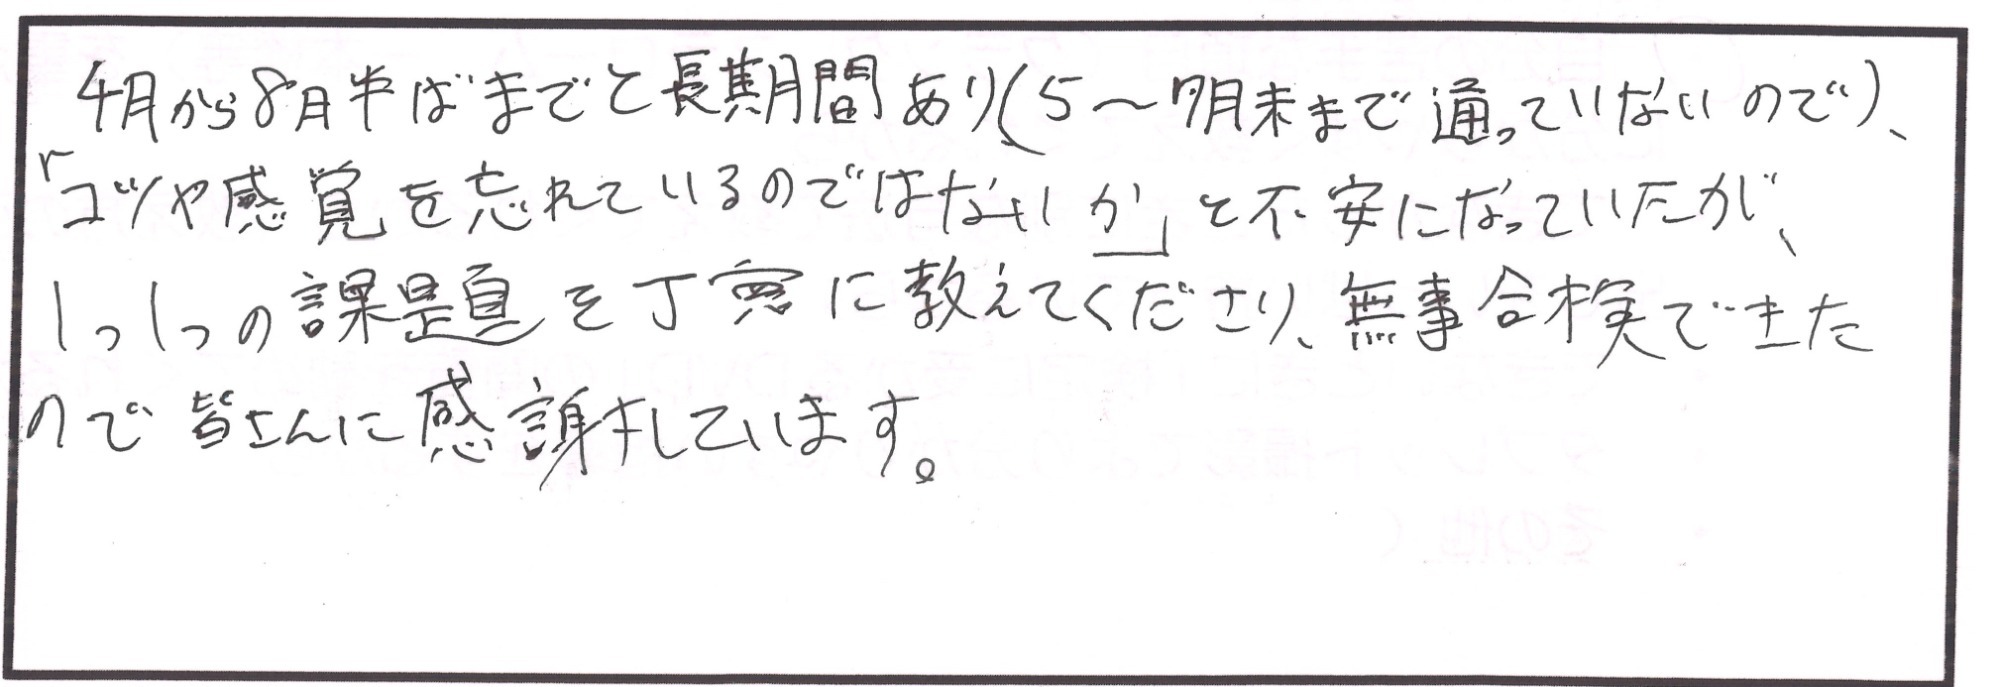 4月から8月半ばまでと長期間あり(5～7月末まで通っていないので)、
「コツや感覚を忘れているのではないか」と不安になっていたが、
1つ1つの課題を丁寧に教えてくださり、無事合検できた
ので皆さんに感謝しています。